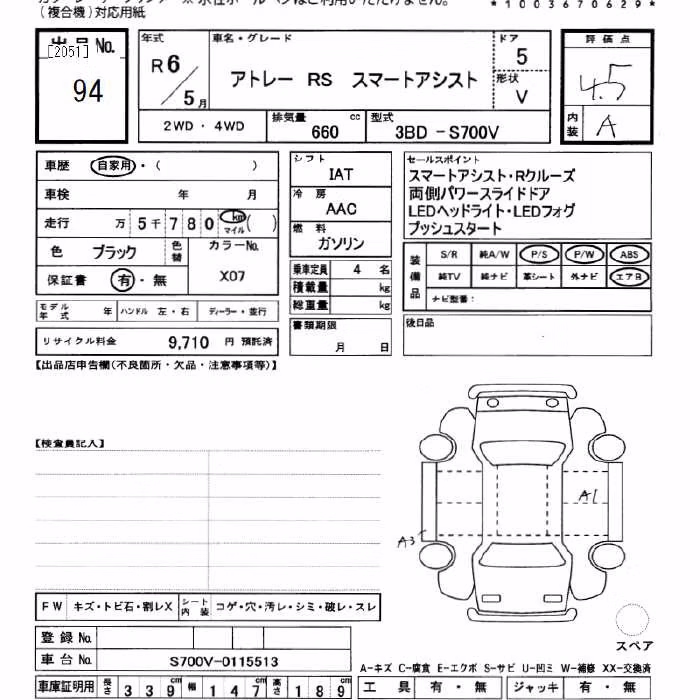 (複合機)対応用紙
*1003670629*
出品No.
[2051]
94
年式
R6/5月
車名・グレード
アトレー RS スマートアシスト
ドア
5
形状
V
評価点
4.5
内装
A
2WD・4WD
排気量
660 cc
型式
3BD-S700V
車歴 自家用・( )
車検 年 月
走行 万 5千780 km マイル ( )
色 ブラック 色替
カラーNo.
X07
保証書 有・無
モデル年式 年 ハンドル 左・右 ディーラー・並行
リサイクル料金 9,710 円 預託済
シフト
IAT
冷房
AAC
燃料
ガソリン
乗車定員 4 名
積載量 kg
総重量 kg
書類期限
月 日
セールスポイント
スマートアシスト・Rクルーズ
両側パワースライドドア
LEDヘッドライト・LEDフォグ
プッシュスタート
装備品
S/R 純A/W P/S P/W ABS
純TV 純ナビ 革シート 外ナビ エアB
ナビ型番:
後日品
【出品店申告欄(不良箇所・欠品・注意事項等)】
【検査員記入】
A1
A3
スペア
FW キズ・トビ石・割レX シート内装 コゲ・穴・汚レ・シミ・破レ・スレ
登録No.
車台No. S700V-0115513
A-キズ C-腐食 E-エクボ S-サビ U-凹ミ W-補修 XX-交換済
車庫証明用 長さ 339cm 幅 147cm 高さ 189cm
工具 有・無 ジャッキ 有・無